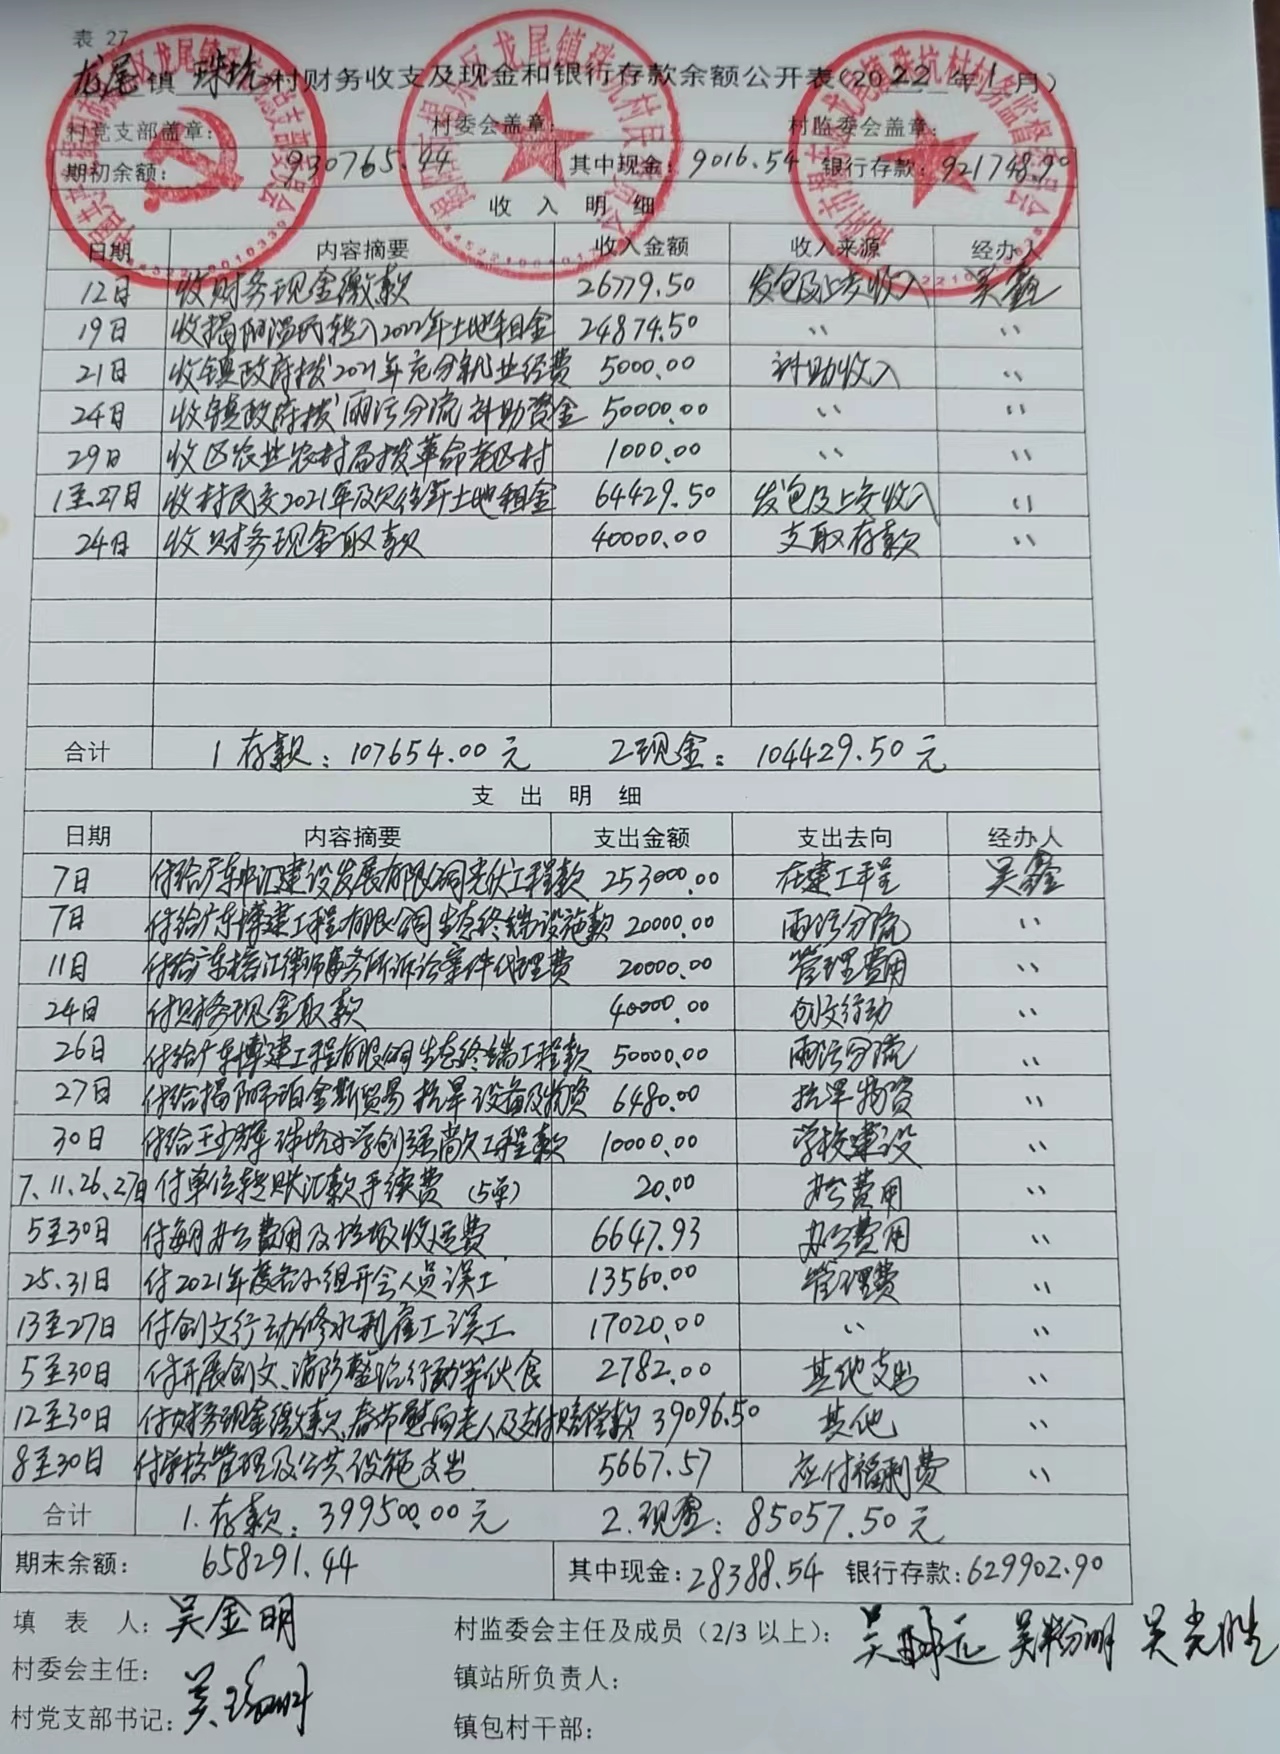 表 27
龙尾镇 珠坑 村财务收支及现金和银行存款余额公开表(2022年1月)
村党支部盖章: 村委会盖章: 村监委会盖章:
期初余额: 930765.44 其中现金: 9016.54 银行存款: 921748.90
收 入 明 细
日期 内容摘要 收入金额 收入来源 经办人
12日 收财务现金缴款 26779.50 发包及上交收入 吴鑫
19日 收揭阳温氏转入2022年土地租金 24874.50 〃 〃
21日 收镇政府拨2021年充分就业经费 5000.00 补助收入 〃
24日 收镇政府拨雨污分流补助资金 50000.00 〃 〃
29日 收区农业农村局拨革命老区村 1000.00 〃 〃
1至27日 收村民交2021年及欠往年土地租金 64429.50 发包及上交收入 〃
24日 收财务现金取款 40000.00 支取存款 〃
合计 1存款: 107654.00元 2现金: 104429.50元
支 出 明 细
日期 内容摘要 支出金额 支出去向 经办人
7日 付给广东中汇建设发展有限公司光伏工程款 253000.00 在建工程 吴鑫
7日 付给广东博建工程有限公司生态终端设施款 20000.00 雨污分流 〃
11日 付给广东榕江律师事务所诉讼案件代理费 20000.00 管理费用 〃
24日 付财务现金取款 40000.00 创文行动 〃
26日 付给广东博建工程有限公司生态终端工程款 50000.00 雨污分流 〃
27日 付给揭阳市珀金斯贸易抗旱设备及物资 6480.00 抗旱物资 〃
30日 付给王少辉珠坑小学创强尚欠工程款 10000.00 学校建设 〃
7.11.26.27日 付单位转账汇款手续费(5单) 20.00 办公费用 〃
5至30日 付每月办公费用及垃圾收运费 6647.93 办公费用 〃
25.31日 付2021年度各小组开会人员误工 13560.00 管理费 〃
13至27日 付创文行动修水利雇工误工 17020.00 〃 〃
5至30日 付开展创文、消防整治行动等伙食 2782.00 其他支出 〃
12至30日 付财务现金缴款、春节慰问老人及支付赔偿款 39096.50 其他 〃
8至30日 付学校管理及公共设施支出 5667.57 应付福利费 〃
合计 1.存款: 399500.00元 2.现金: 85057.50元
期末余额: 658291.44 其中现金: 28388.54 银行存款: 629902.90
填 表 人: 吴金明 村监委会主任及成员(2/3以上): 吴光胜
村委会主任: 镇站所负责人:
村党支部书记: 镇包村干部: